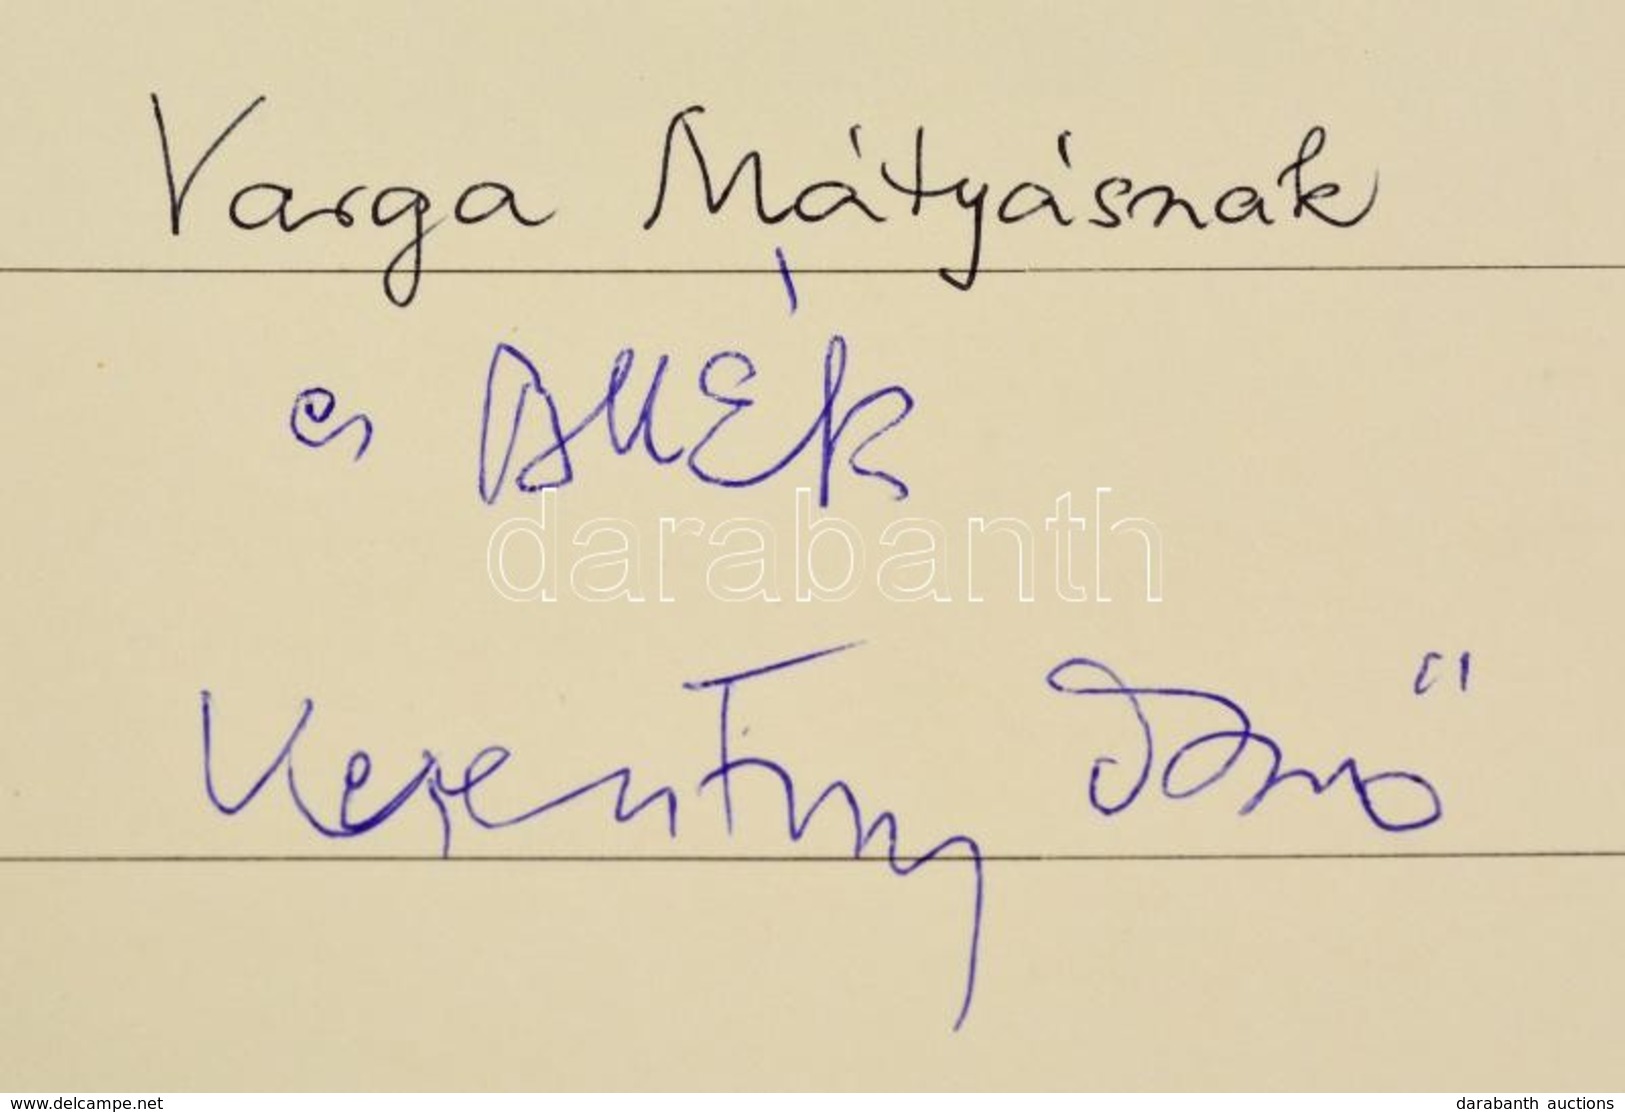 Varga Mátyásnak
és
darabanth
Kerentury Dezső
www.delcampe.net
darabanth auctions